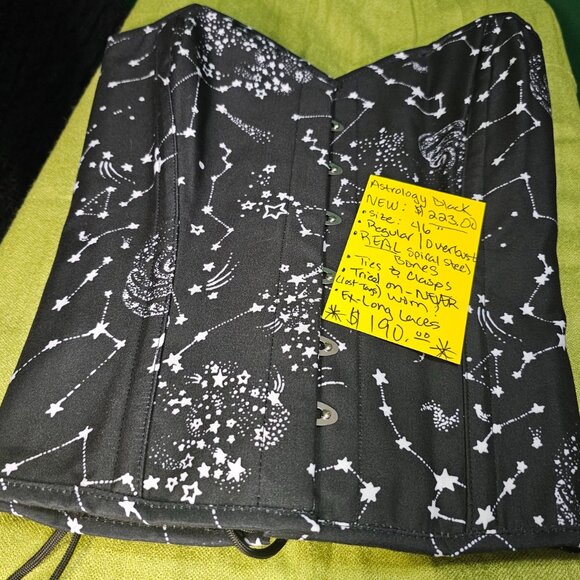 Astrology Black
NEW: $223.00
• Size: 46"
• Regular / Overbust
• REAL spiral steel
Bones
• Ties & Clasps
• Tried on - NEVER
(lost tags) worn!
• Ex-Long Laces
* $190.00 *